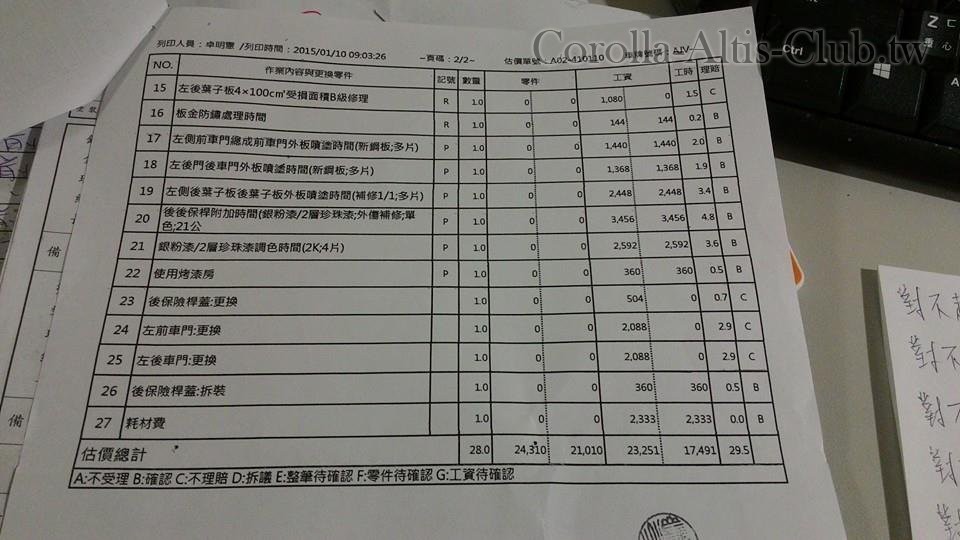 Corolla-Altis-Club.tw
列印人員：卓明憲 /列印時間：2015/01/10 09:03:26 ~頁碼：2/2~ 估價單號：A02-410110 車牌號碼：AJV-
NO. 作業內容與更換零件 記號 數量 零件 工資 工時 理賠
15 左後葉子板4×100cm²受損面積B級修理 R 1.0 0 0 1,080 0 1.5 C
16 板金防鏽處理時間 R 1.0 0 0 144 144 0.2 B
17 左側前車門總成前車門外板噴塗時間(新鋼板;多片) P 1.0 0 0 1,440 1,440 2.0 B
18 左後門後車門外板噴塗時間(新鋼板;多片) P 1.0 0 0 1,368 1,368 1.9 B
19 左側後葉子板後葉子板外板噴塗時間(補修1/1;多片) P 1.0 0 0 2,448 2,448 3.4 B
20 後後保桿附加時間(銀粉漆/2層珍珠漆;外傷補修;單色;21公 P 1.0 0 0 3,456 3,456 4.8 B
21 銀粉漆/2層珍珠漆調色時間(2K;4片) P 1.0 0 0 2,592 2,592 3.6 B
22 使用烤漆房 P 1.0 0 0 360 360 0.5 B
23 後保險桿蓋:更換 1.0 0 0 504 0 0.7 C
24 左前車門:更換 1.0 0 0 2,088 0 2.9 C
25 左後車門:更換 1.0 0 0 2,088 0 2.9 C
26 後保險桿蓋:拆裝 1.0 0 0 360 360 0.5 B
27 耗材費 1.0 0 0 2,333 2,333 0.0 B
估價總計 28.0 24,310 21,010 23,251 17,491 29.5
A:不受理 B:確認 C:不理賠 D:拆議 E:整筆待確認 F:零件待確認 G:工資待確認
備
備
Ctrl
Z
重
心
對不
對不
對不
對
對